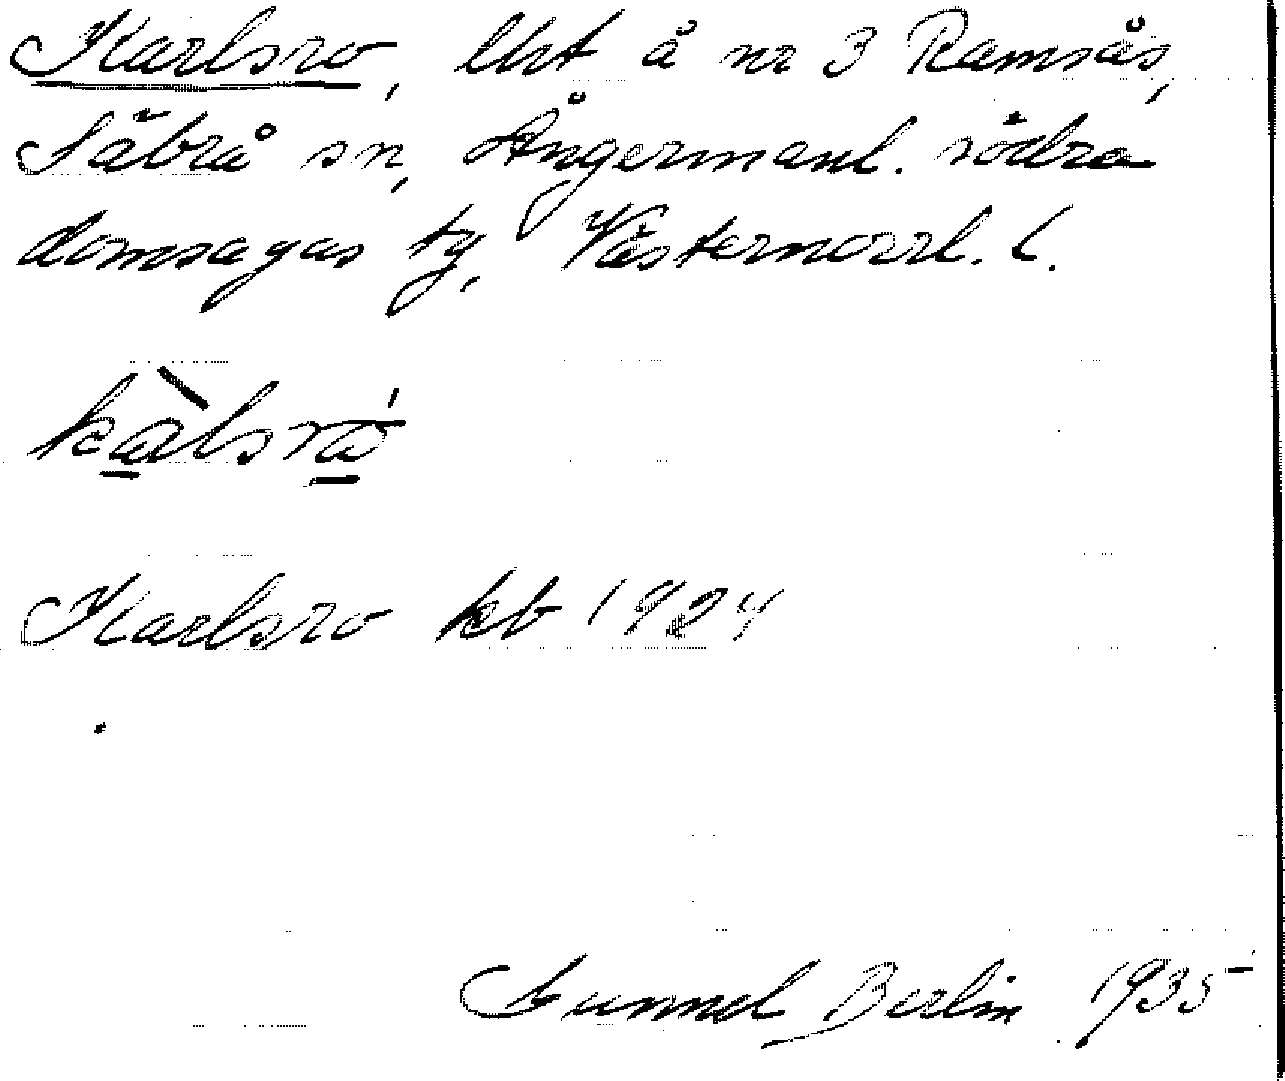 Karlsro, lht å nr 3 Ramsås,
Säbrå sn, Ångermanl. södra
domsagas tg, Västernorrl. l.
kàlsrå
Karlsro kb 1924
Gunnel Berlin 1935